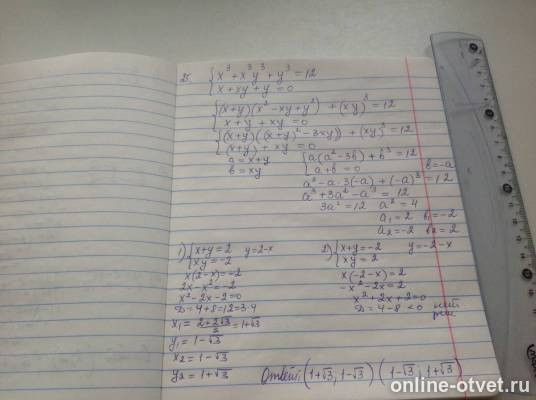 25. { x³ + x³y³ + y³ = 12
x + xy + y = 0
{ (x+y)(x² - xy + y²) + (xy)³ = 12
x + y + xy = 0
{ (x+y)((x+y)² - 3xy) + (xy)³ = 12
(x+y) + xy = 0
a = x+y
b = xy
{ a(a² - 3b) + b³ = 12
a + b = 0
b = -a
a³ - a·3(-a) + (-a)³ = 12
a³ + 3a² - a³ = 12
3a² = 12 a² = 4
a₁ = 2 b₁ = -2
a₂ = -2 b₂ = 2
1) { x+y = 2 y = 2-x
xy = -2
x(2-x) = -2
2x - x² = -2
x² - 2x - 2 = 0
D = 4+8 = 12 = 3·4
x₁ = (2+2√3)/2 = 1+√3
y₁ = 1-√3
x₂ = 1-√3
y₂ = 1+√3
2) { x+y = -2 y = -2-x
xy = 2
x(-2-x) = 2
-x² - 2x = 2
x² + 2x + 2 = 0
D = 4-8 < 0 нет
реш
Ответ: (1+√3; 1-√3) (1-√3; 1+√3)
online-otvet.ru